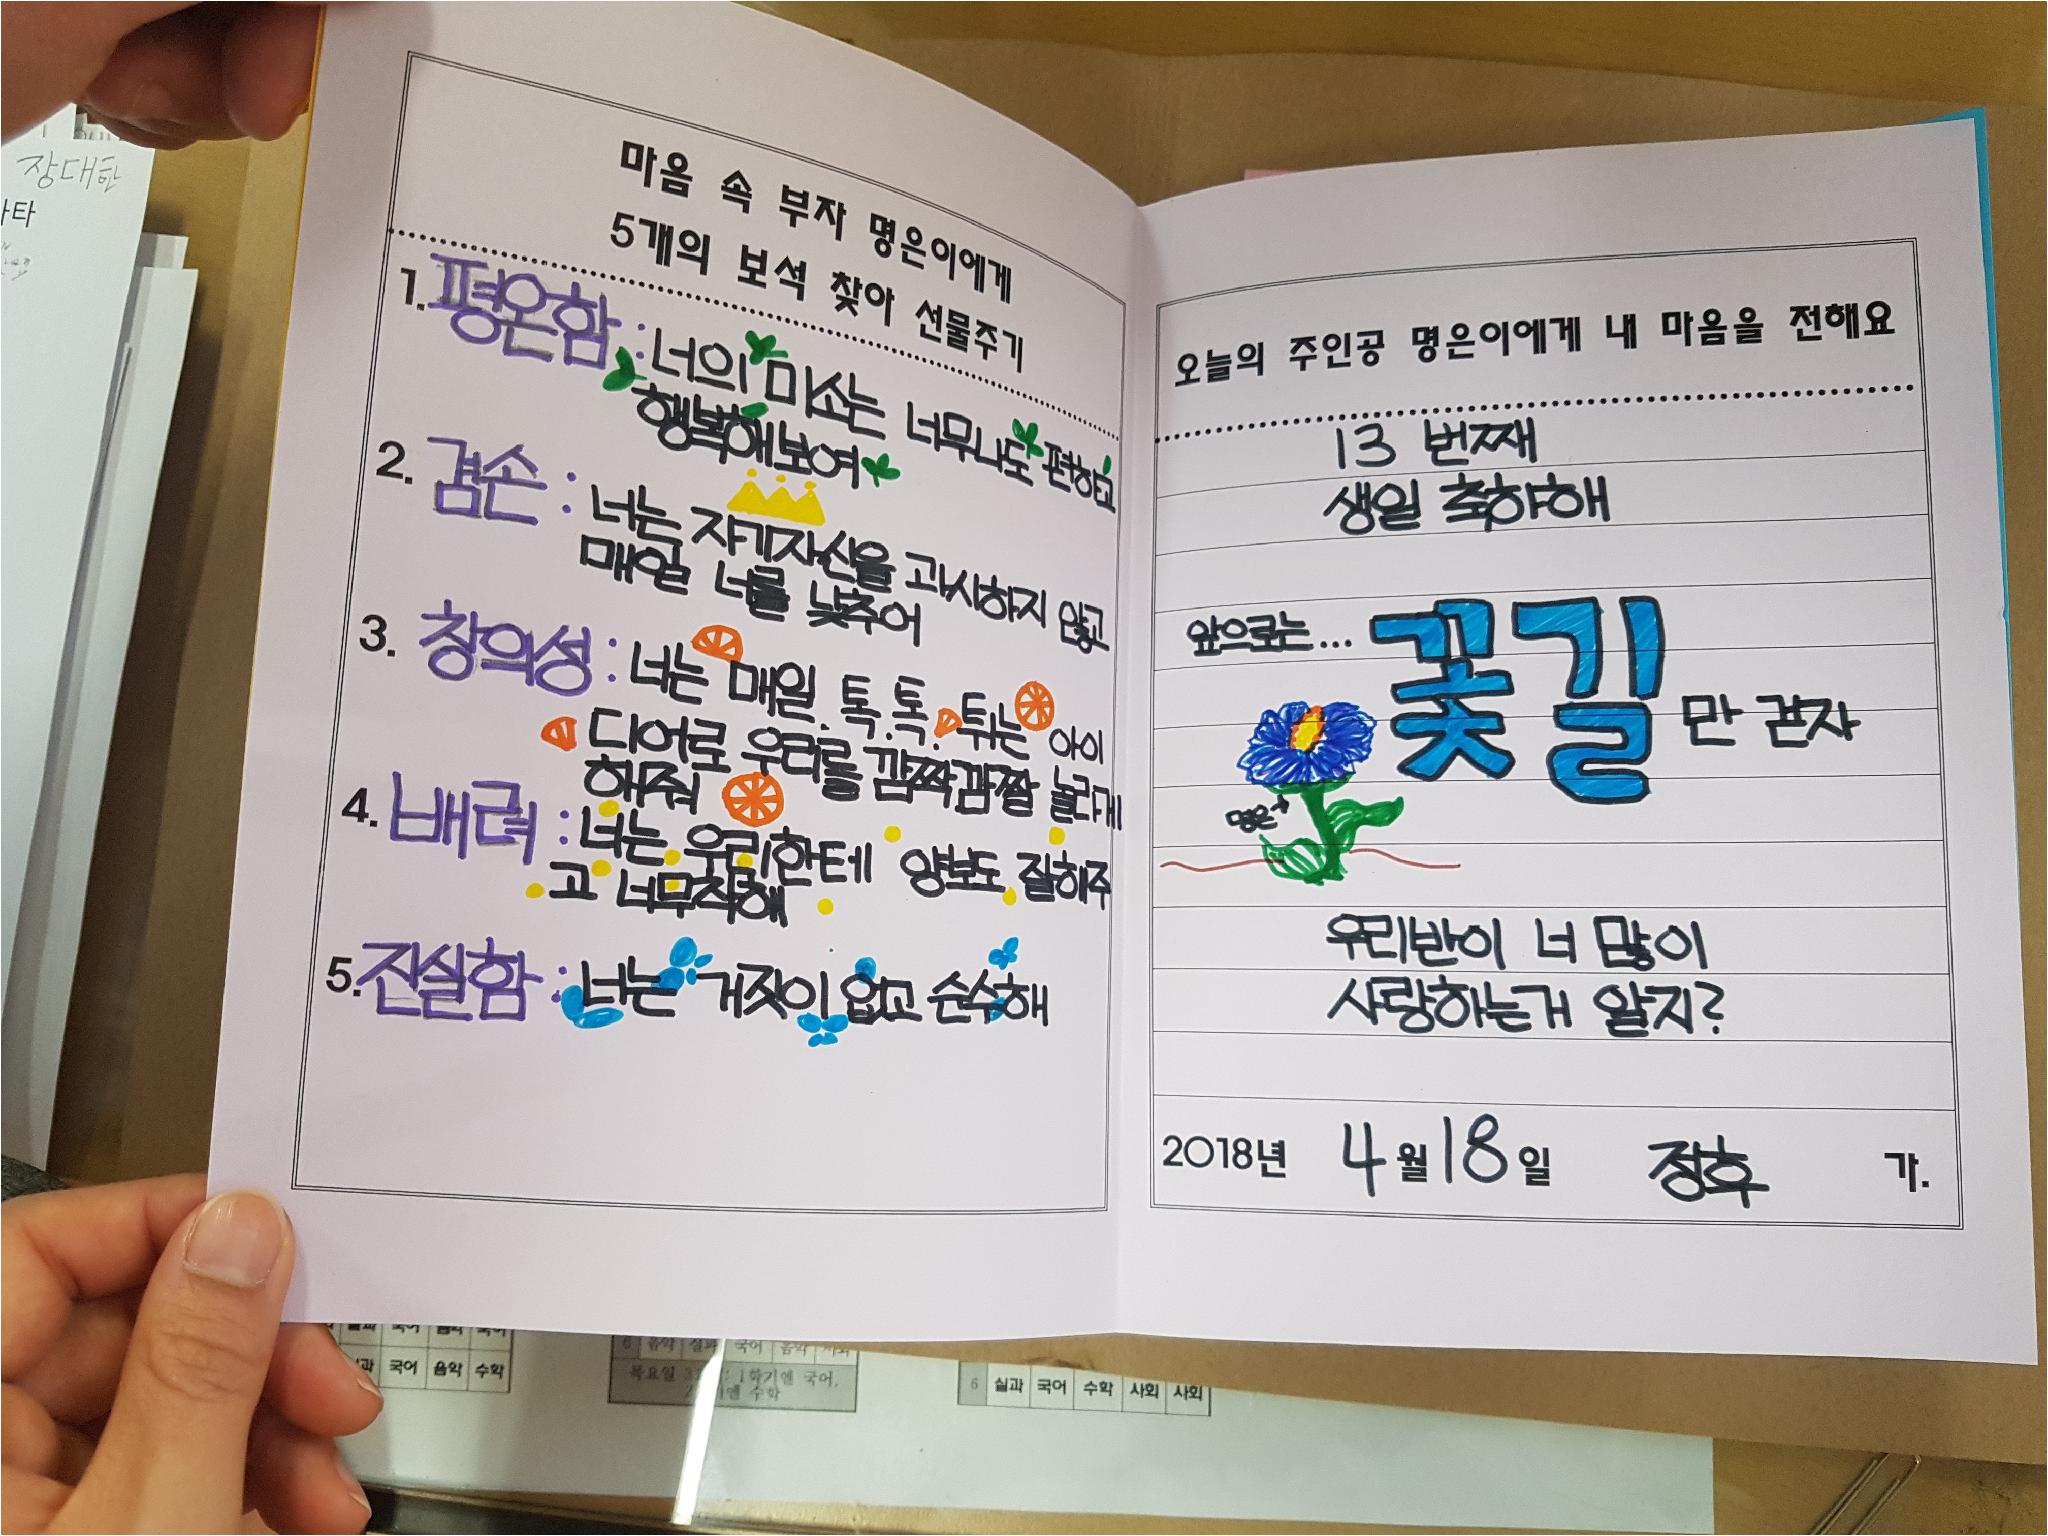 장대한
타
마음 속 부자 명은이에게
5개의 보석 찾아 선물주기
1. 평온함 : 너의 미소는 너무나도 편하고
행복해보여
2. 겸손 : 너는 자기자신을 과시하지 않고
매일 너를 낮추어
3. 창의성 : 너는 매일 톡.톡. 튀는 아이
디어로 우리를 깜짝깜짝 놀라게
해줘
4. 배려 : 너는 우리한테 양보도 잘해주
고 너무착해
5. 진실함 : 너는 거짓이 없고 순수해
오늘의 주인공 명은이에게 내 마음을 전해요
13 번째
생일 축하해
앞으로는... 꽃길만 걷자
명은→
우리반이 너 많이
사랑하는거 알지?
2018년 4월 18일 정후 가.
국어 음악 수학
6 음악 실과 국어 음악 사회
목요일 1학기엔 국어,
수학
6 실과 국어 수학 사회 사회